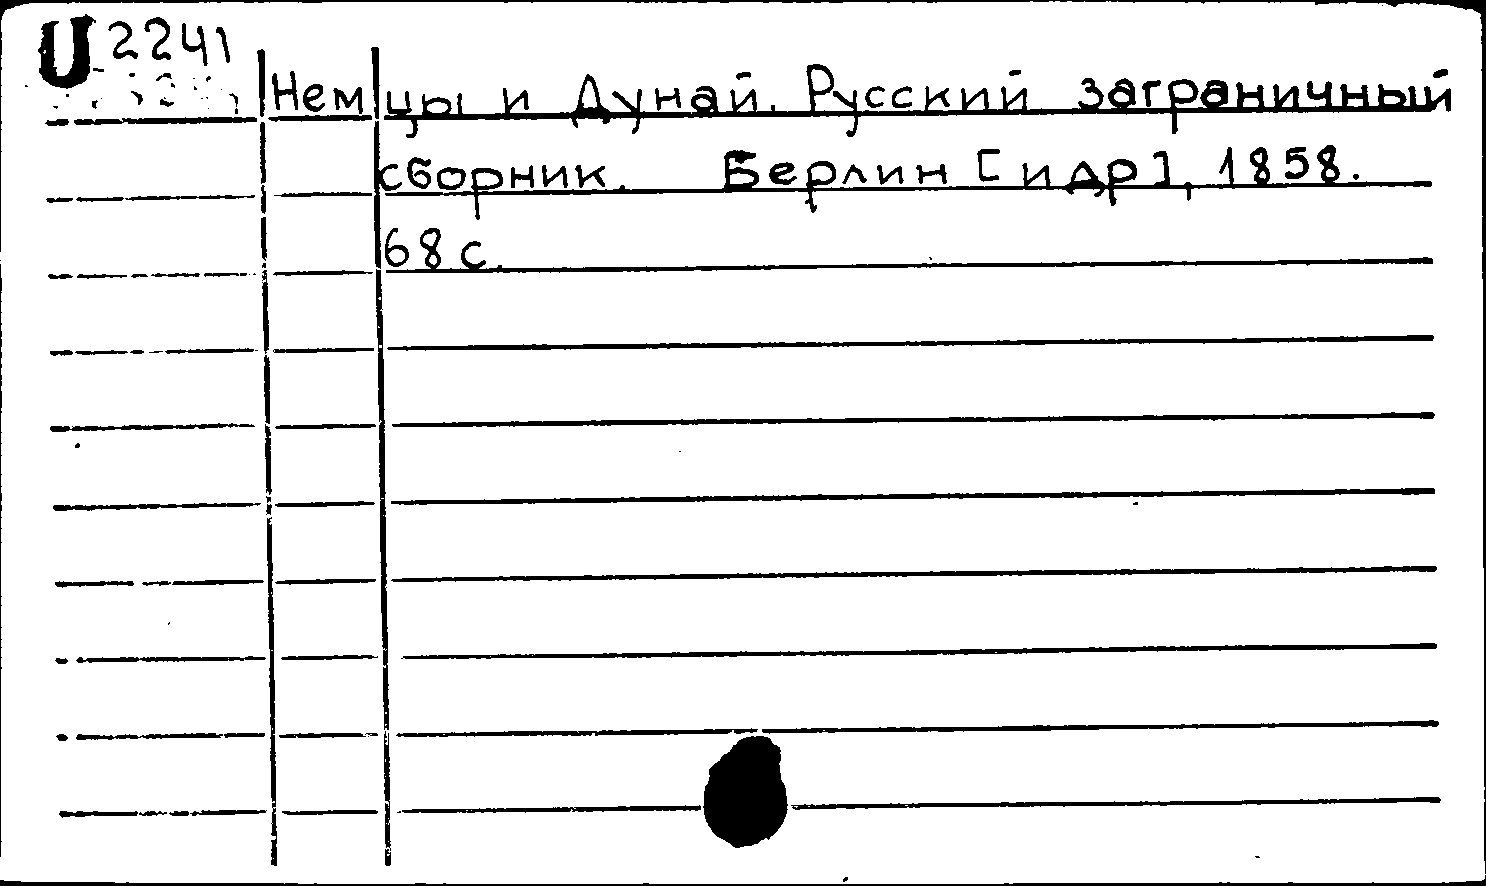 U 2241
Немцы и Дунай. Русский заграничный
сборник. Берлин [и др], 1858.
68 с.